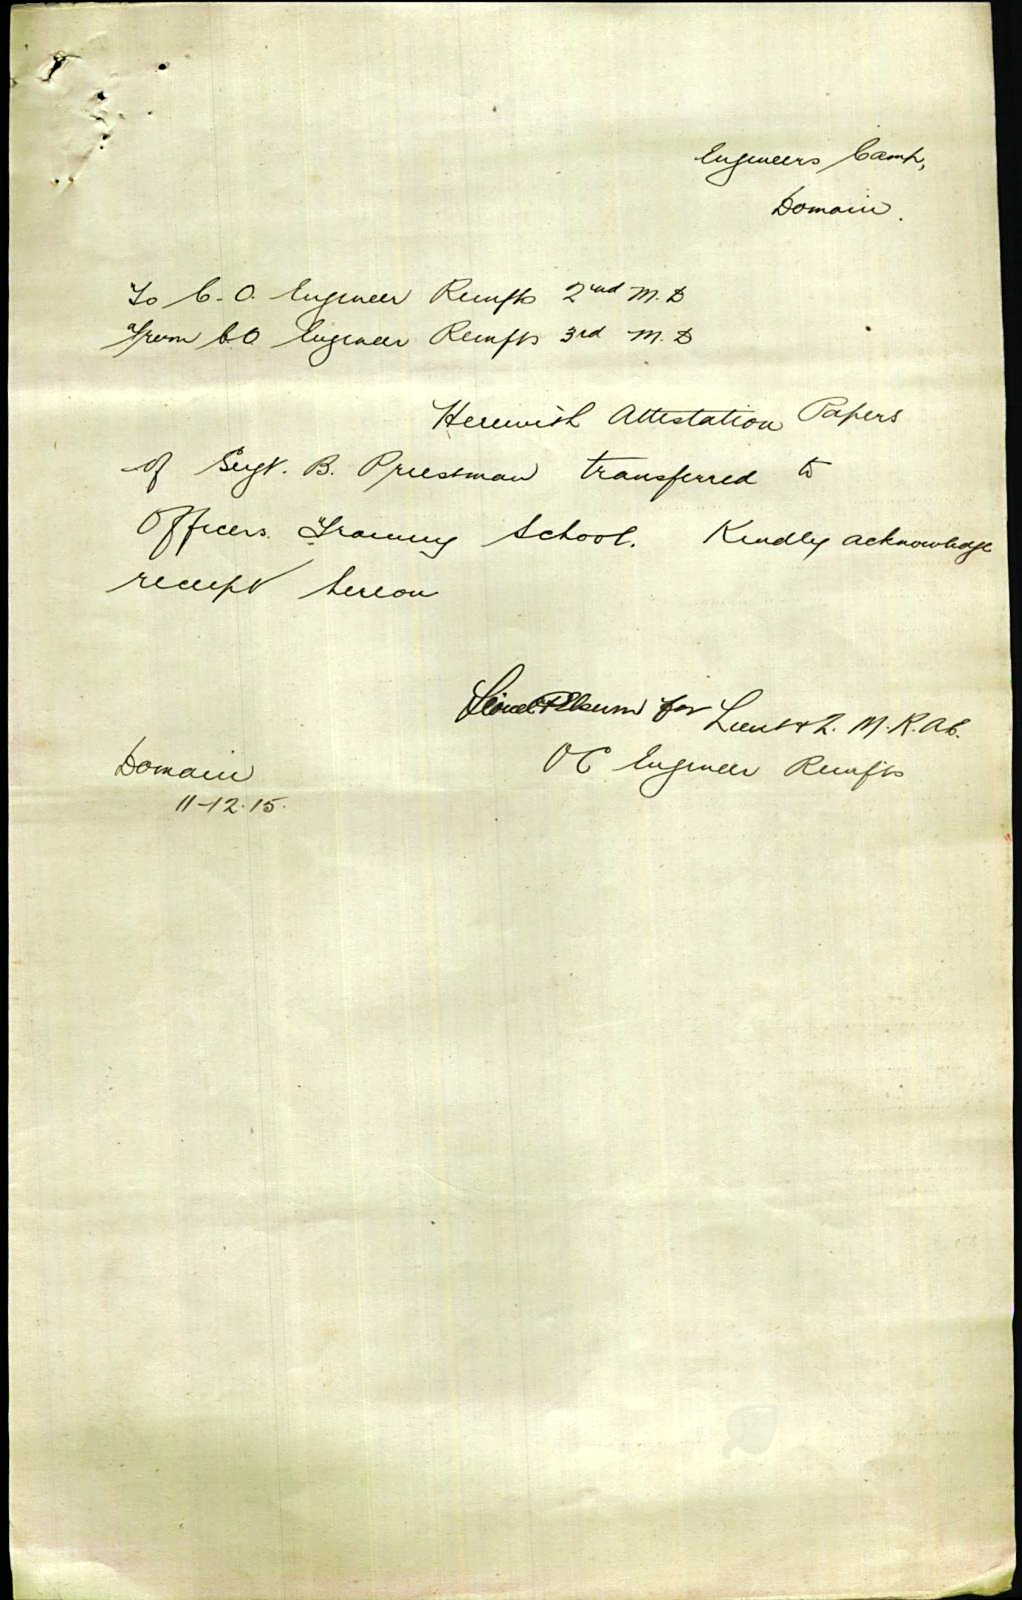 Engineers Camp,
Domain.
To C.O. Engineer Reinfts 2nd M.D
From CO Engineer Reinfts 3rd M.D
Herewith Attestation Papers
of Sergt. B. Priestman transferred to
Officers Training School. Kindly acknowledge
receipt hereon
for Lieut & Q. M. R.A.E.
OC Engineer Reinfts
Domain
11-12-15.